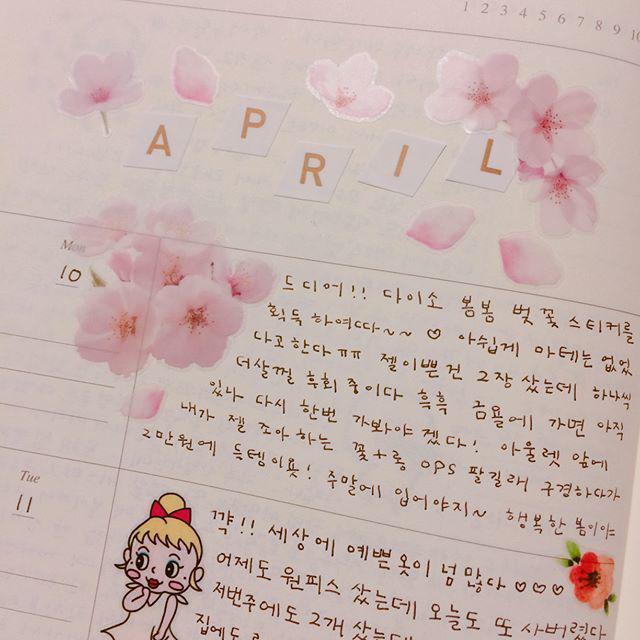 1 2 3 4 5 6 7 8 9 10
APRIL
Mon
10
드디어!! 다이소 봄봄 벚꽃 스티커를
획득하여따~~ ♡ 아쉽게 마테는 없었
다고한다ㅠㅠ 젤이쁜건 2장 샀는데 하나씩
더살껄 후회 중이다 흑흑 금욜에 가면 아직
있나 다시 한번 가봐야 겠다! 아울렛 앞에
내가 젤 조아하는 꽃+롱 OPS 팔길래 구경하다가
2만원에 득템이욧! 주말에 입어야지~ 행복한 봄이야
Tue
11
꺅!! 세상에 예쁜옷이 넘 많다 ♡♡♡
어제도 원피스 샀는데 오늘도 또 사버렸다
저번주에도 2개 샀는데
집에도